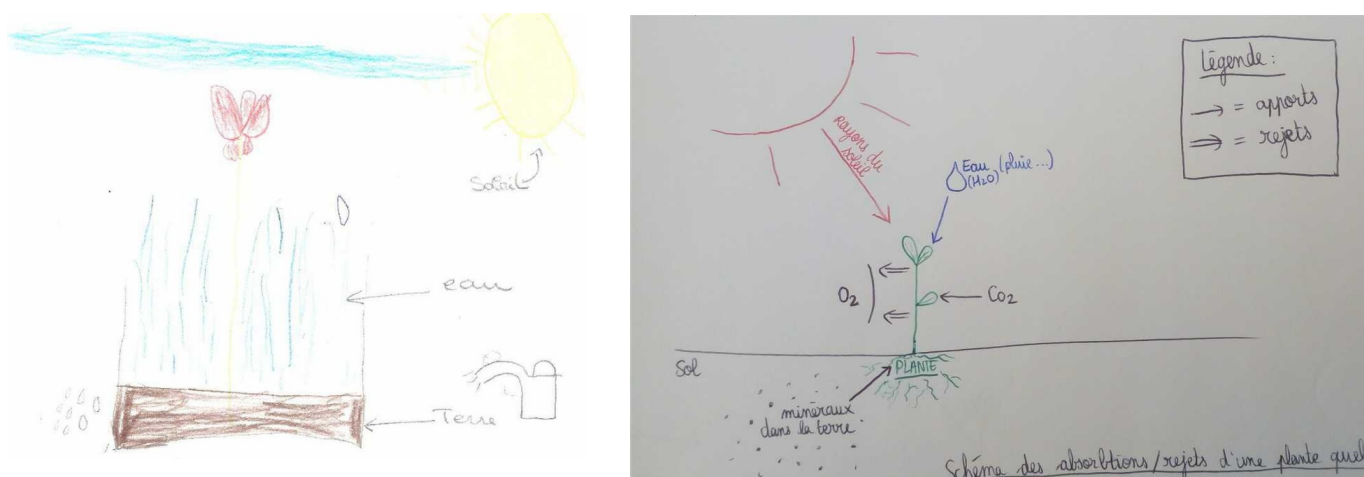 Soleil
eau
Terre
Légende :
→ = apports
⇒ = rejets
Rayons du
soleil
Eau (pluie...)
(H2O)
O2
CO2
Sol
PLANTE
minéraux
dans la terre
Schéma des absorbtions/rejets d'une plante quel